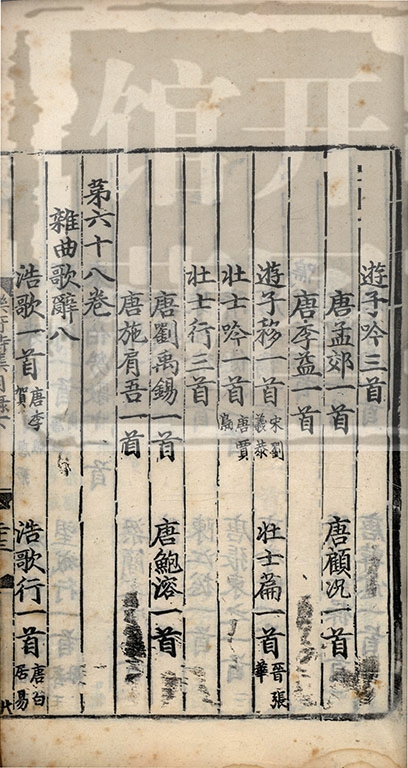 遊子吟三首
唐孟郊一首 唐顧況一首
唐李益一首
遊子移一首 宋劉義恭 壯士篇一首 晉張華
壯士吟一首 唐賈島
壯士行三首
唐劉禹錫一首 唐鮑溶一首
唐施肩吾一首
第六十八卷
雜曲歌辭八
浩歌一首 唐李賀 浩歌行一首 唐白居易